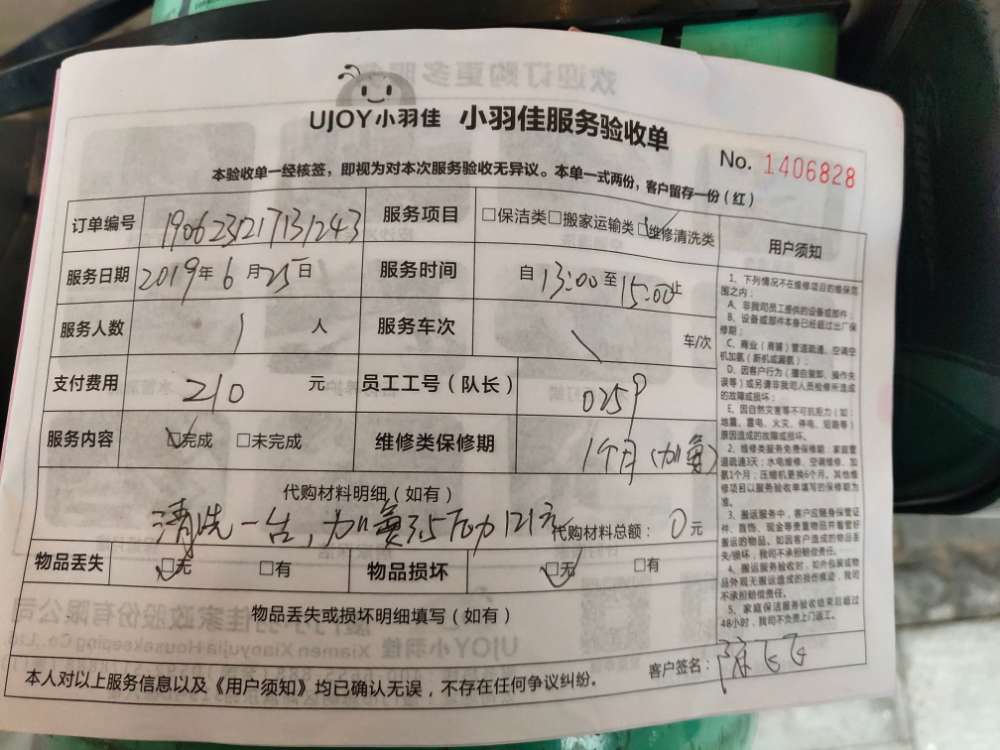 UJOY小羽佳 小羽佳服务验收单
No. 1406828
本验收单一经核签，即视为对本次服务验收无异议。本单一式两份，客户留存一份（红）
订单编号 190623217131243 服务项目 □保洁类□搬家运输类□维修清洗类
服务日期 2019年6月25日 服务时间 自13:00至15:00止
服务人数 1 人 服务车次 \ 车/次
支付费用 210 元 员工工号（队长） 0259
服务内容 □完成 □未完成 维修类保修期 1个月（加氟）
代购材料明细（如有）
清洗一台，加氟3.5 121元 代购材料总额：0元
物品丢失 □无 □有 物品损坏 □无 □有
物品丢失或损坏明细填写（如有）
本人对以上服务信息以及《用户须知》均已确认无误，不存在任何争议纠纷。
客户签名：
用户须知
1、下列情况不在维修项目的维保范
围之内：
A、非我司员工提供的设备或部件；
B、设备或部件本身已经超过出厂保
修期；
C、商业（商铺）管道疏通、空调空
机加氨（新机或漏氨）；
D、因客户行为（擅自装卸、操作失
误等）或另请非我司人员检修所造成
的故障或损坏；
E、因自然灾害等不可抗力（如：
地震、雷电、火灾、停电、短路等）
原因造成的故障或损坏。
2、维修类服务免费保修期：家庭管
道疏通3天；水电维修、空调维修、加
氨1个月；压缩机更换6个月。其他维
修项目以服务验收单填写的保修期为
准。
3、搬运服务中，客户应随身保管证
件、首饰、现金等贵重物品并看管好
搬运的物品。如因客户造成的物品丢
失/损坏，我司不承担赔偿责任。
4、搬运服务验收时，如外包装或物
品外观无搬运造成的损伤痕迹，我司
不承担赔偿责任。
5、家庭保洁服务验收结束后超过
48小时，我司不负责上门返工。